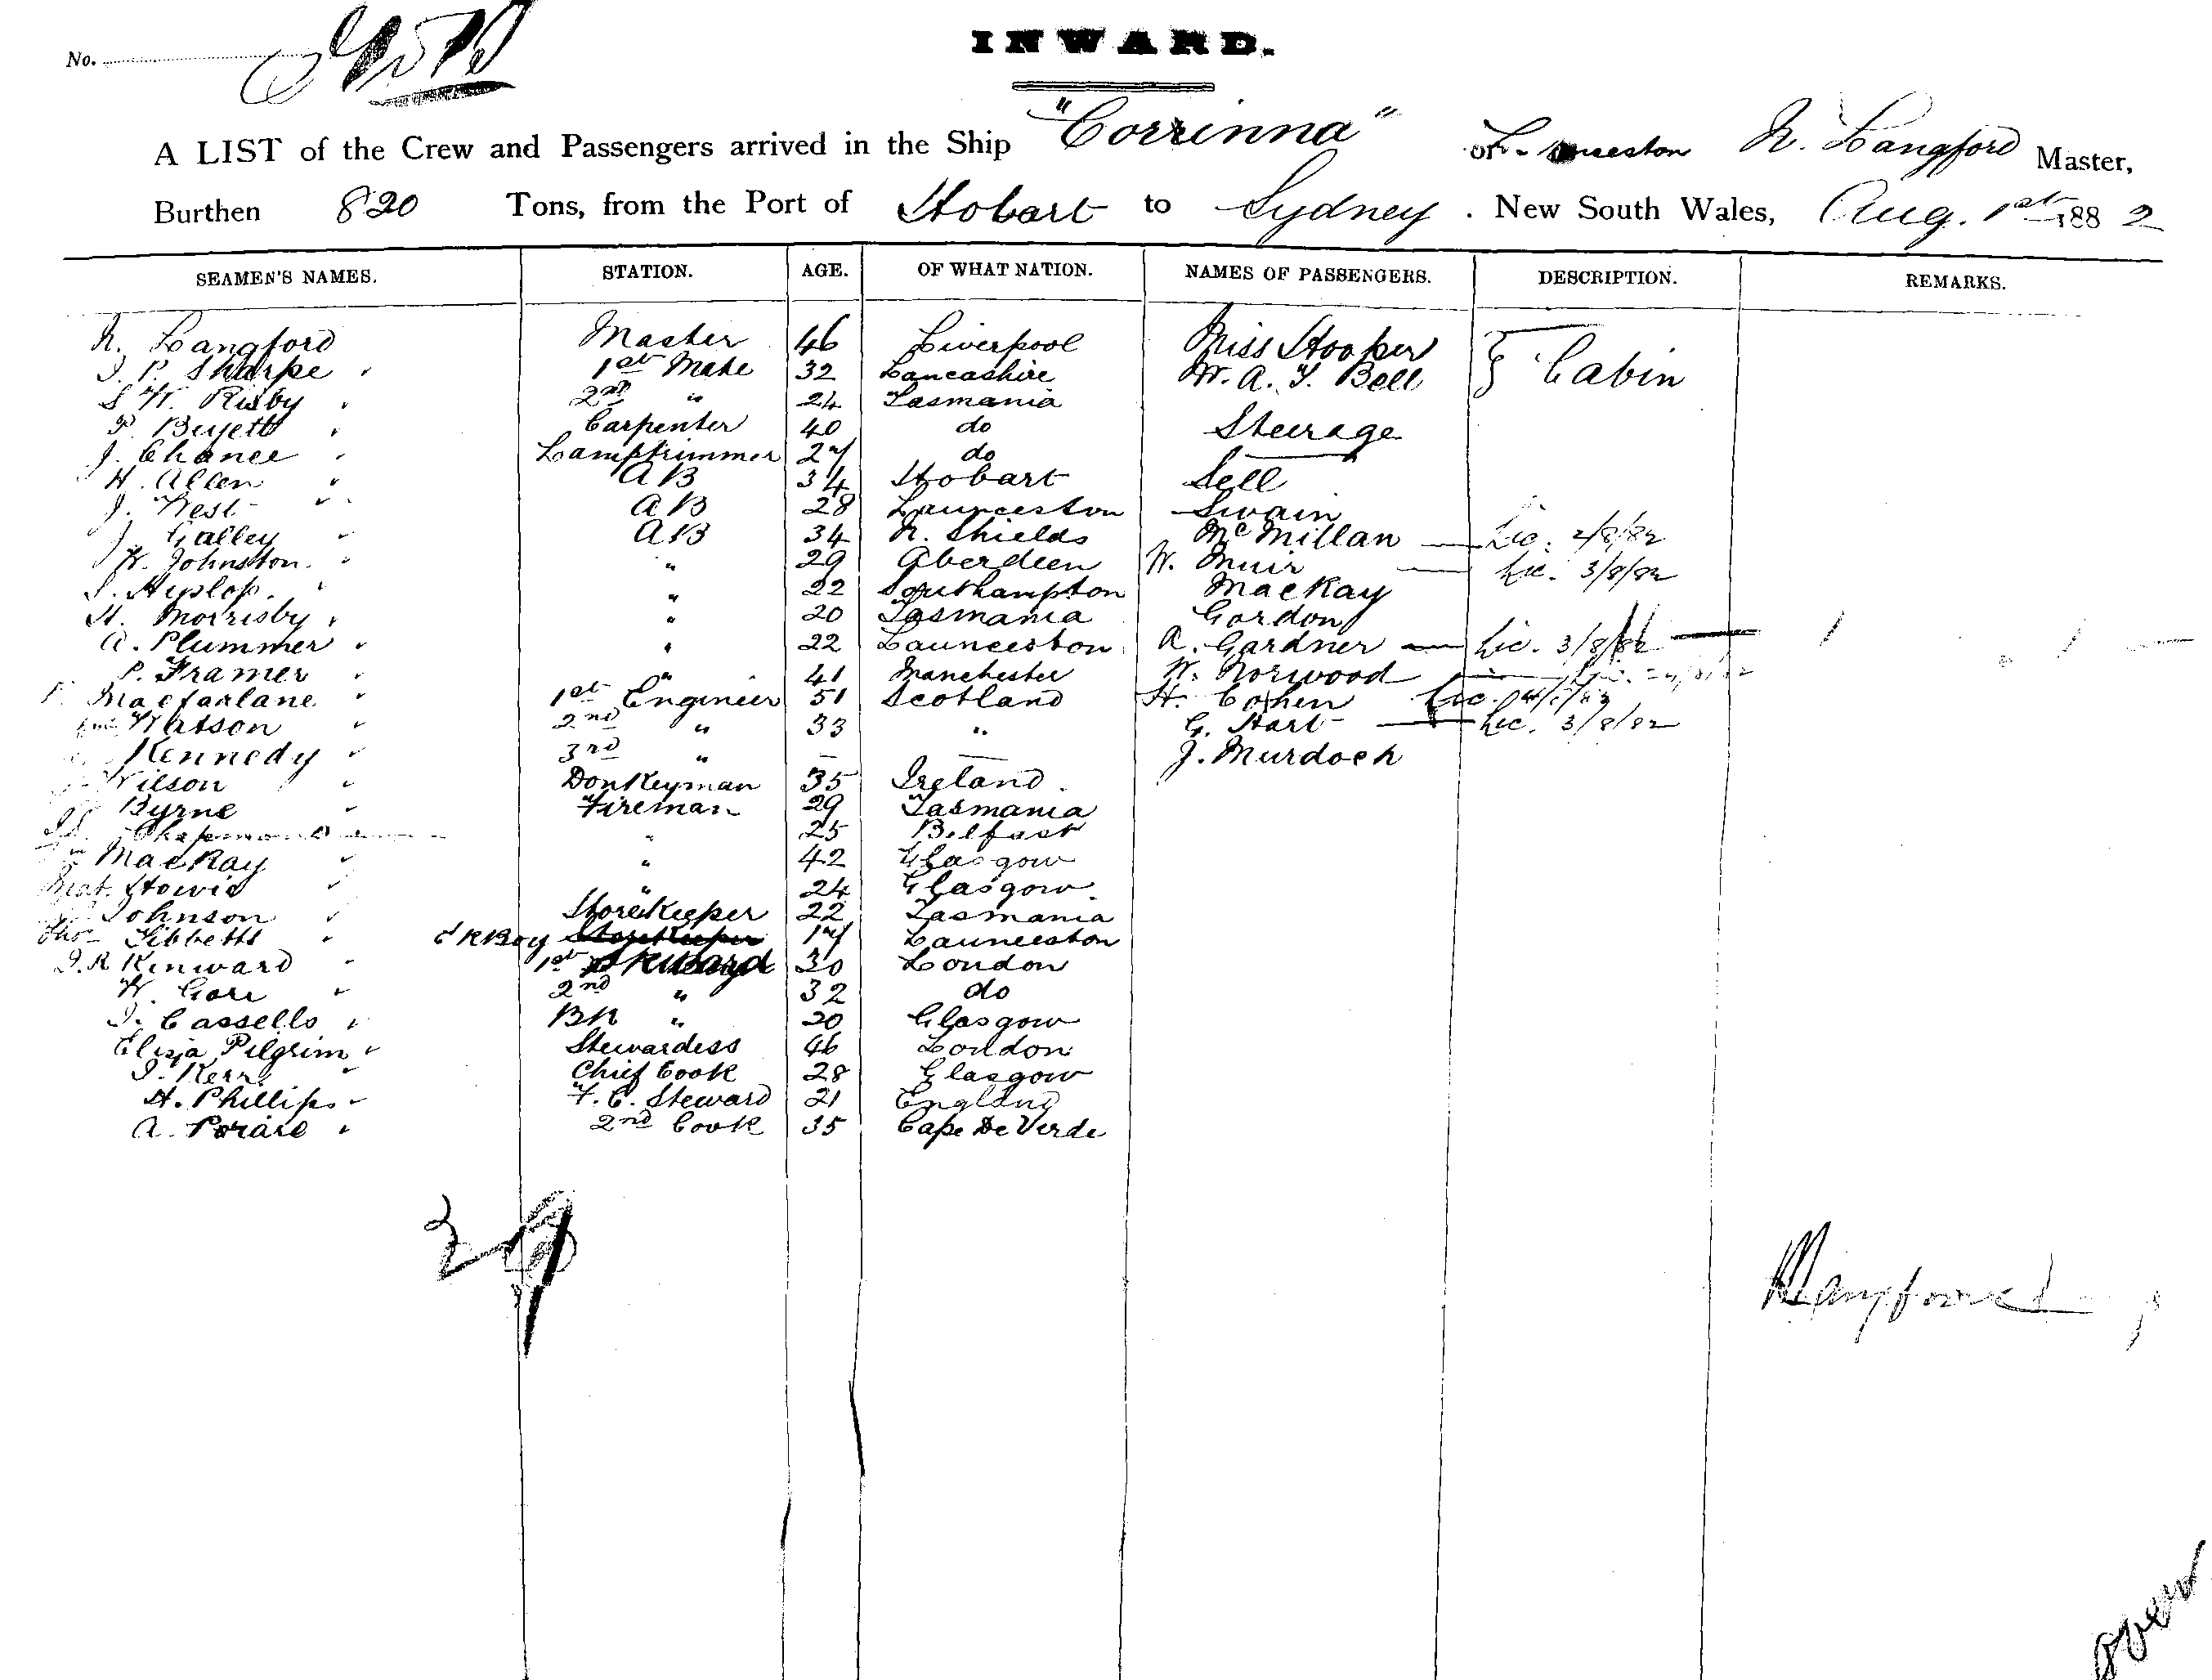 No.
INWARD.
A LIST of the Crew and Passengers arrived in the Ship "Corrinna" of Launceston N. Langford Master,
Burthen 820 Tons, from the Port of Hobart to Sydney. New South Wales, Aug. 1st 1882
SEAMEN'S NAMES. STATION. AGE. OF WHAT NATION. NAMES OF PASSENGERS. DESCRIPTION. REMARKS.
N. Langford Master 46 Liverpool Miss Hooper
J. P. Sharpe 1st Mate 32 Lancashire W. A. T. Bell } Cabin
Risby 2nd " 24 Tasmania
Carpenter 40 do Steerage
J. Chance Lamptrimmer 27 do
H. Allen AB 34 Hobart Sell
J. West AB 28 Launceston Swain
J. Galley AB 34 N. Shields McMillan — Lic. 2/8/82
W. Johnston. " 29 Aberdeen W. Muir — Lic. 3/8/82
Hyslop. " 22 Southampton MacKay
H. Morrisby " 20 Tasmania Gordon
A. Plummer " 22 Launceston A. Gardner — Lic. 3/8/82
P. Framer " 41 Manchester W. Norwood
Macfarlane 1st Engineer 51 Scotland H. Cohen Lic.
Watson 2nd " 33 " G. Hart — Lic. 3/8/82
Kennedy 3rd " — — J. Murdoch
Wilson Donkeyman 35 Ireland.
Byrne Fireman 29 Tasmania
" 25 Belfast
MacKay " 42 Glasgow
Mat. Howie " 24 Glasgow.
Johnson Storekeeper 22 Tasmania
Thos Tibbetts Boy Storekeeper 17 Launceston
J. R Kinward 1st Steward 30 London
W. Gore 2nd " 32 do
Cassells BK " 20 Glasgow
Eliza Pilgrim Stewardess 46 London
J. Kerr. Chief Cook 28 Glasgow
H. Phillips F. C. Steward 21 England
A. 2nd Cook 35 Cape De Verde
Langford
over